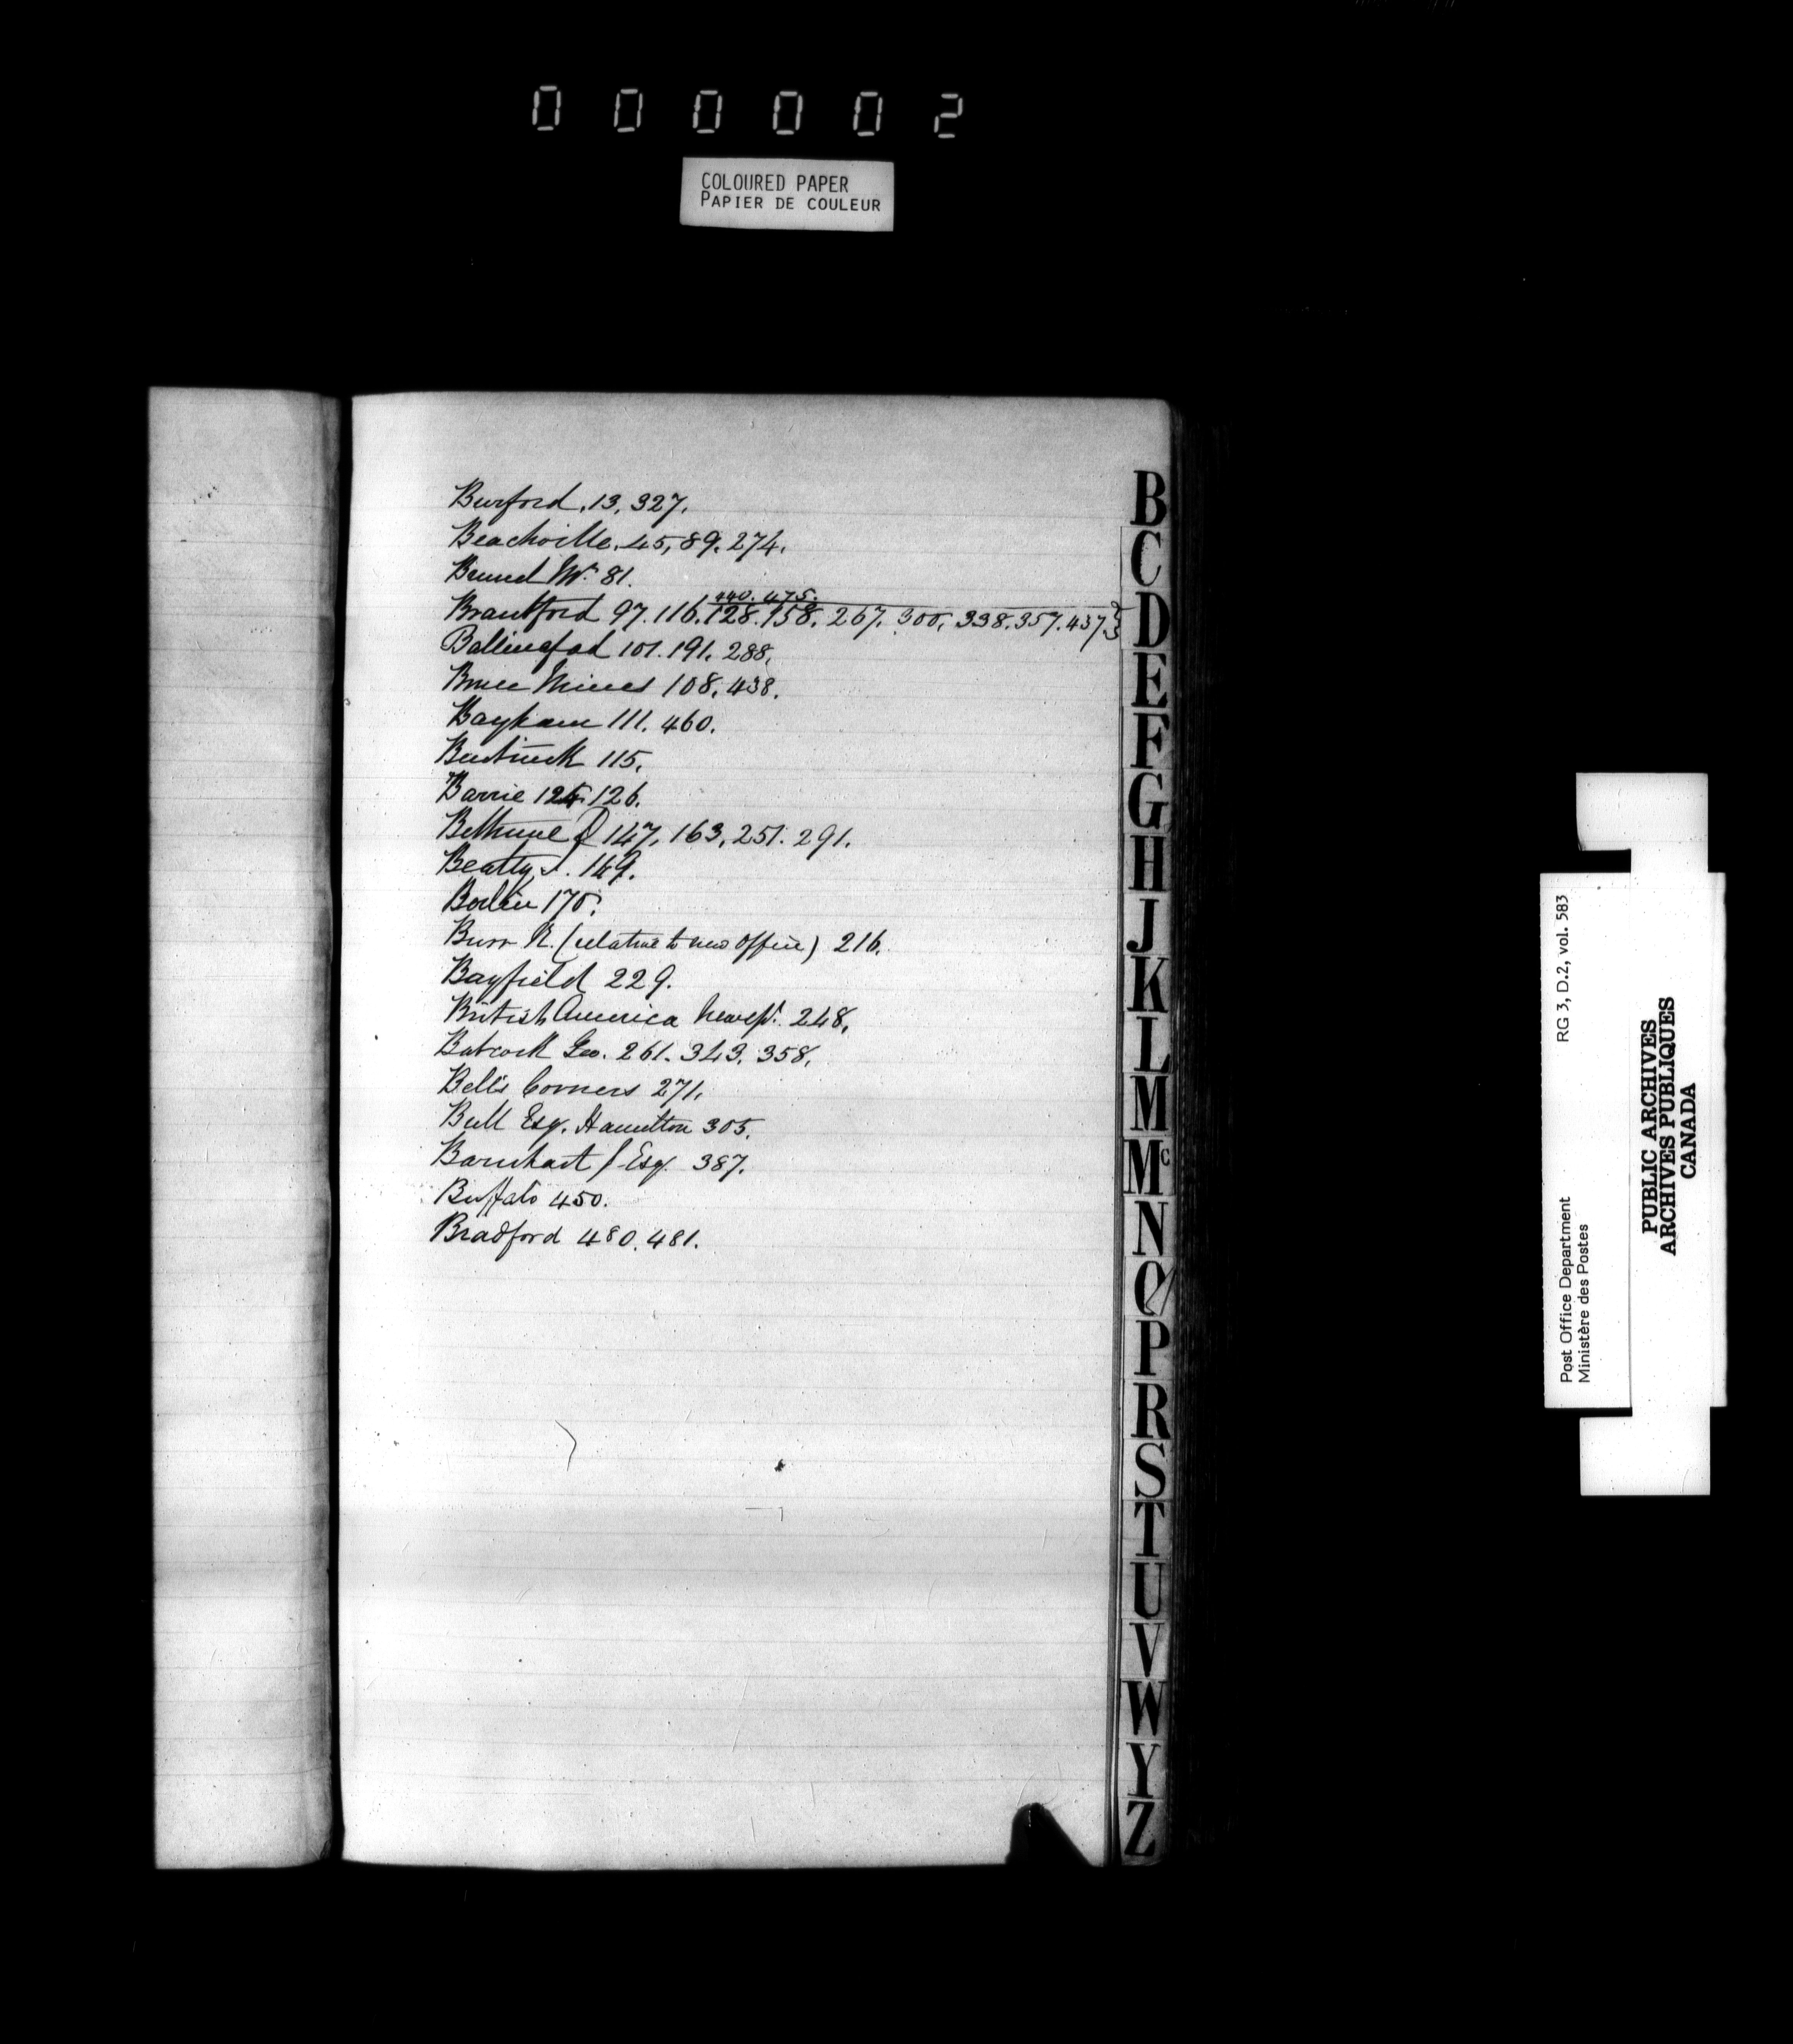 000002
COLOURED PAPER
PAPIER DE COULEUR
Burford. 13. 327.
Beachville. 45, 89. 274.
Brunel Mr. 81.
440. 475.
Brantford 97. 116. 128. 158. 267. 300. 338. 357. 437.
Ballinafad 101. 191. 288.
Bruce Mines 108. 438.
Bayham 111. 460.
Bentinck 115.
Barrie 126.
Bethune 147. 163. 251. 291.
Beatty J. 149.
Berlin 175.
Burr R. (relative to new office) 216.
Bayfield 229.
British America 248.
Babcock Geo. 261. 343. 358.
Bell's Corners 271.
Bull Esq. Hamilton 305.
Barnhart J Esq. 387.
Buffalo 450.
Bradford 480. 481.
B
C
D
E
F
G
H
J
K
L
M
Mc
N
O
P
R
S
T
U
V
W
Y
Z
Post Office Department
Ministère des Postes
RG 3, D.2, vol. 583
PUBLIC ARCHIVES
ARCHIVES PUBLIQUES
CANADA